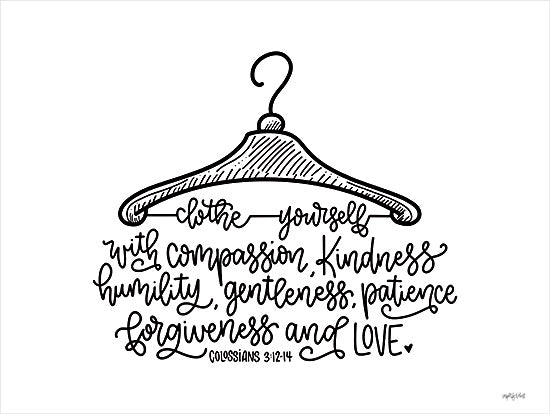 clothe yourself
with compassion, kindness
humility, gentleness, patience
forgiveness and LOVE.
COLOSSIANS 3:12-14